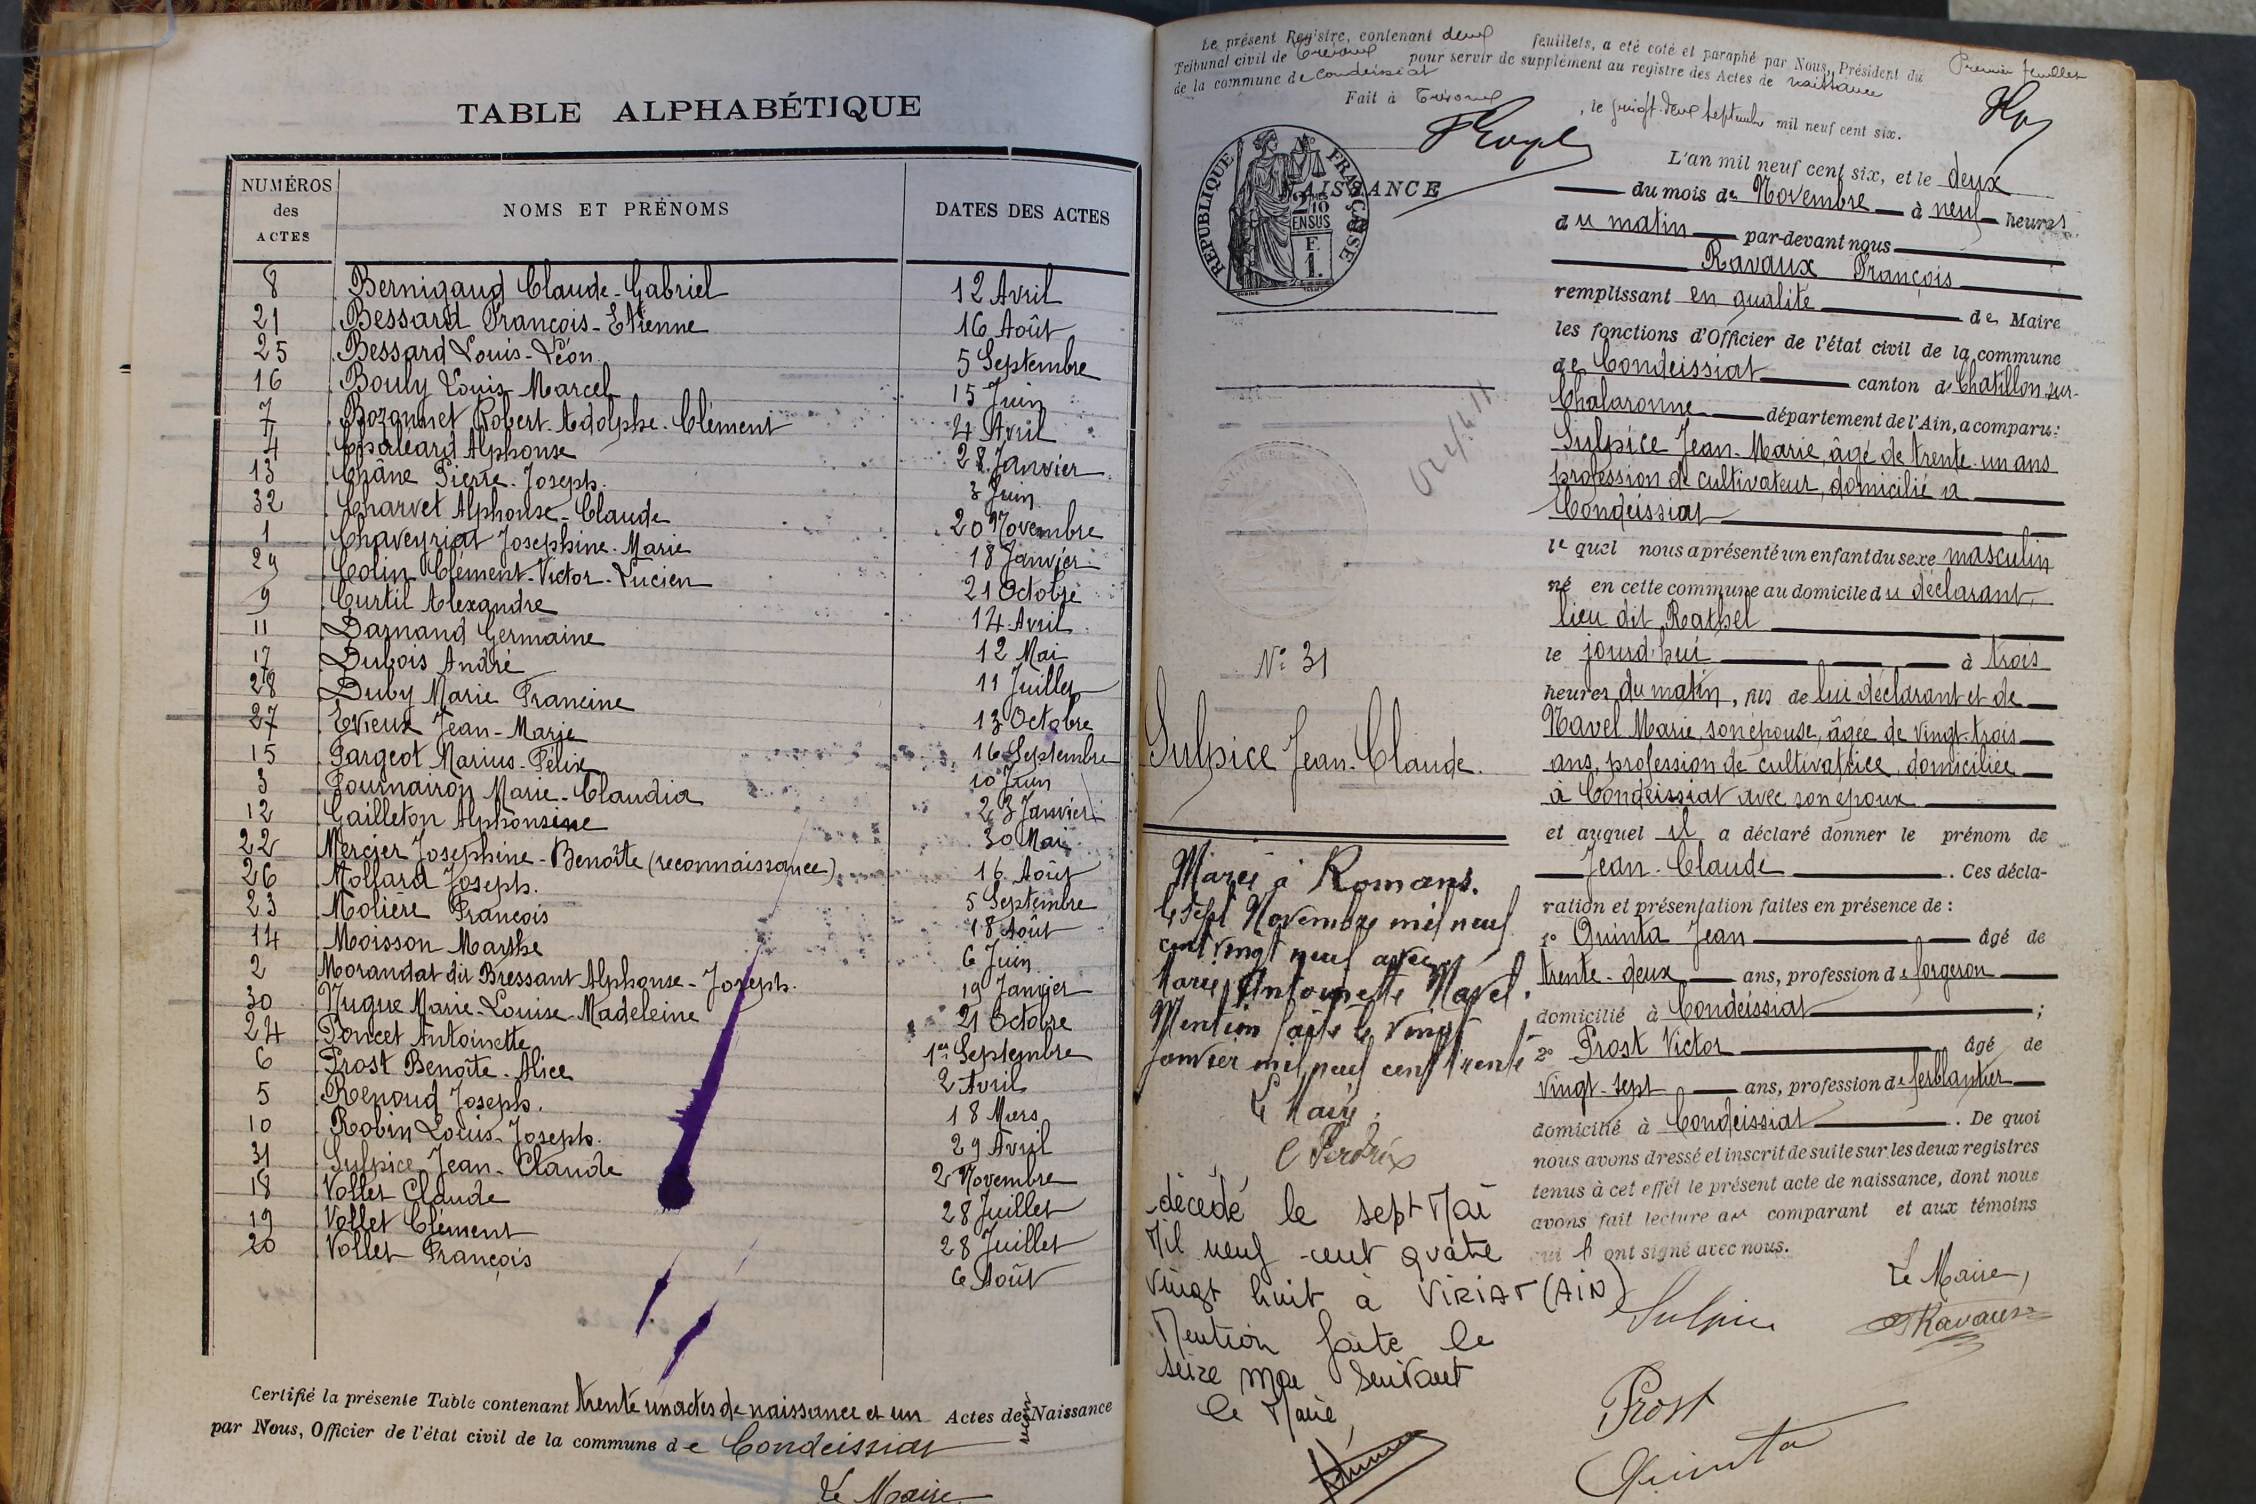 TABLE ALPHABÉTIQUE
NUMÉROS des ACTES NOMS ET PRÉNOMS DATES DES ACTES
8 Bernigaud Claude-Gabriel 12 Avril
21 Bessard François-Etienne 16 Août
25 Bessard Louis-Léon 5 Septembre
16 Bouly Louis-Marcel 15 Juin
7 Bozonnet Robert-Adolphe-Clément 4 Avril
4 Chaléard Alphonse 28 Janvier
13 Châne Pierre-Joseph. 3 Juin
32 Charvet Alphonse-Claude 20 Novembre
1 Chaveyriat Josephine-Marie 18 Janvier
29 Colin Clément-Victor-Lucien 21 Octobre
9 Curtil Alexandre 14 Avril
11 Darnand Germaine 12 Mai
17 Dubois André 11 Juillet
28 Duby Marie Francine 13 Octobre
27 Evieux Jean-Marie 16 Septembre
15 Fargeot Marius-Félix 10 Juin
3 Fournairon Marie-Claudia 23 Janvier
12 Gailleton Alphonsine 30 Mai
22 Mercier Josephine-Benoîte (reconnaissance) 16 Août
26 Mollard Joseph. 5 Septembre
23 Molière François 18 Août
14 Moisson Marthe 6 Juin
2 Morandat dit Bressant Alphonse-Joseph. 19 Janvier
30 Nugue Marie-Louise-Madeleine 21 Octobre
24 Poncet Antoinette 1er Septembre
6 Prost Benoîte-Alice 2 Avril
5 Renoud Joseph. 18 Mars
10 Robin Louis-Joseph. 29 Avril
31 Sulpice Jean-Claude 2 Novembre
18 Vollet Claude 28 Juillet
19 Vollet Clément 28 Juillet
20 Vollet François 6 Août
Certifié la présente Table contenant trente un actes de naissance et un Actes de Naissance
par Nous, Officier de l'état civil de la commune de Condeissiat
Le Maire
Le présent Registre, contenant deux feuillets, a eté coté et paraphé par Nous, Président du
Tribunal civil de Trévoux pour servir de supplément au registre des Actes de naissance
de la commune de Condeissiat
Premier feuillet
Fait à Trévoux, le vingt-deux septembre mil neuf cent six.
NAISSANCE
RÉPUBLIQUE FRANÇAISE
2 10
EN SUS
F.
1.
L'an mil neuf cent six, et le deux
du mois de Novembre à neuf heures
du matin par-devant nous
Ravaux François
remplissant en qualité de Maire
les fonctions d'Officier de l'état civil de la commune
de Condeissiat canton de Chatillon-sur-
Chalaronne département de l'Ain, a comparu:
Sulpice Jean-Marie, âgé de trente-un ans
profession de cultivateur, domicilié à
Condeissiat
lequel nous a présenté un enfant du sexe masculin
né en cette commune au domicile du déclarant,
lieu dit Rathel
le jourd'hui à trois
heures du matin, fils de lui déclarant et de
Navel Marie, son épouse, âgée de vingt-trois
ans, profession de cultivatrice, domiciliée
à Condeissiat avec son époux
et auquel il a déclaré donner le prénom de
Jean-Claude. Ces décla-
ration et présentation faites en présence de :
1° Quinta Jean âgé de
trente-deux ans, profession de forgeron
domicilié à Condeissiat ;
2° Prost Victor âgé de
vingt-sept ans, profession de ferblantier
domicilié à Condeissiat. De quoi
nous avons dressé et inscrit de suite sur les deux registres
tenus à cet effet le présent acte de naissance, dont nous
avons fait lecture au comparant et aux témoins
qui ont signé avec nous.
Le Maire,
Sulpice
Ravaux
Prost
Quinta
N° 31
Sulpice Jean-Claude.
Marié à Romans.
le sept Novembre mil neuf
cent vingt neuf avec
Marie Antoinette Navel.
Mention faite le vingt
Janvier mil neuf cent trente
Le Maire.
C Perdrix
décédé le sept Mai
Mil neuf-cent quatre
vingt huit à VIRIAT (AIN)
Mention faite le
seize mai suivant
le Maire,